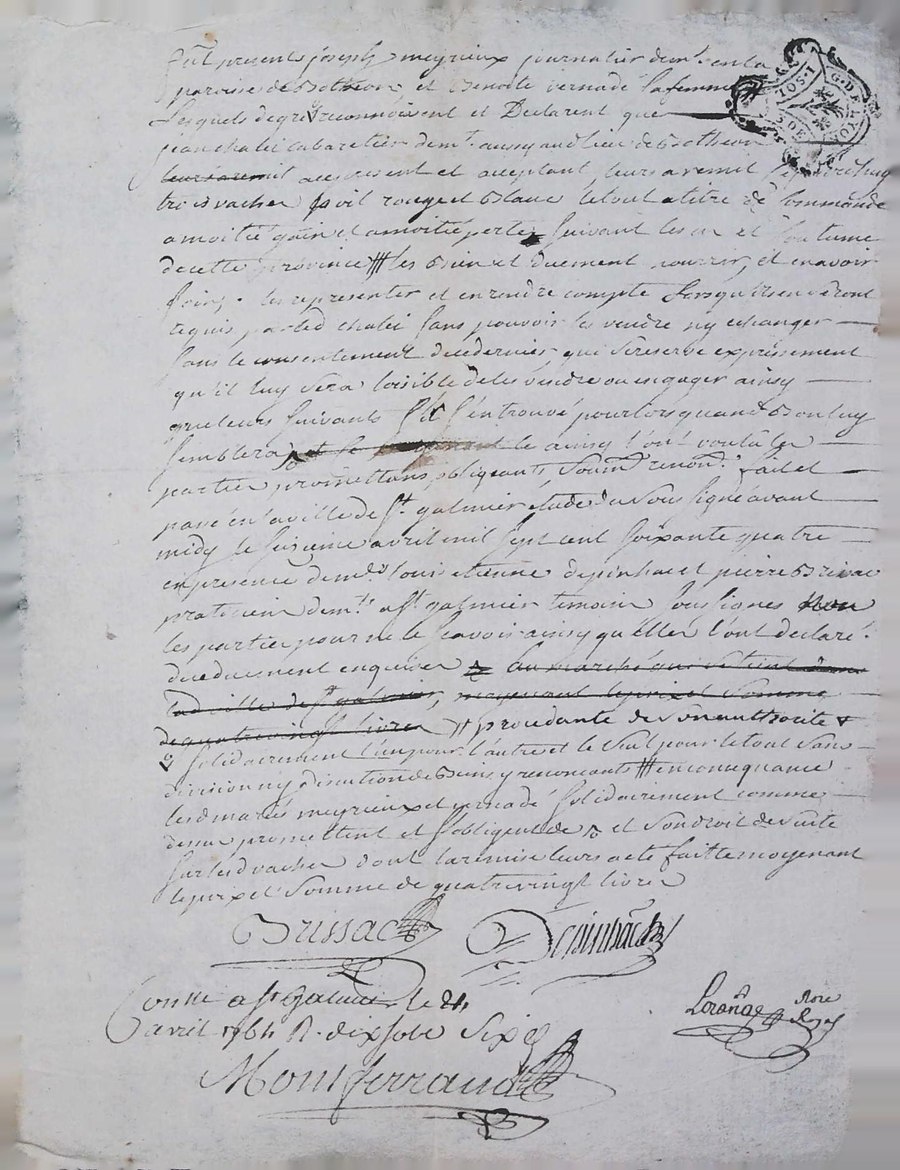 fut present joseph meyrieux journalier dem.t en la
paroisse de Botheon, et Benoite vernade sa femme
Lesquels de gré reconnoissent et Declarent que
jean chalei cabaretier dem.t aussy au lieu de Botheon
leurs a remit acceptant leurs a remit
trois vaches poil rouge et Blanc le tout a titre de Commande
a moitié gain et a moitié perte, suivant les us et Coutume
de cette province les Bien et duement nourrir, et en avoir
soins, les representer et en rendre compte Lorsqu'ils en seront
requis par led chalei sans pouvoir les vendre ny echanger
sans le consentement de ce dernier, qui se reserve expressement
qu'il luy sera loisible de les vendre ou engager ainsy
que leurs suivants s'il s'en trouve pour lors quand Bon luy
semblera, et le ainsy l'ont voulu les
parties promettans, obligeants, soum renon.t fait et
passé en la ville de S.t galmier etude du Sous signé avant
midy le seizieme avril mil sept cent soixante quatre
en presence de m.e Louis etienne depinhac et pierre Brissac
praticien dem.ts a S.t galmier temoins soussignes non
les parties pour ne le sçavoir ainsy qu'elles l'ont declaré
de ce duement enquises au marché qui se tient dans
lad ville de S.t galmier, moyenant le prix et Somme
de quatre vingt livres procedante de son authorité
solidairement l'un pour l'autre et le seul pour le tout sans
division ny discution de Biens y renoncants en consequance
lesd mariés meyrieux et vernade solidairement comme
dessus promettent et s'obligent de et son droit de suite
sur lesd vaches dont la remise leurs a eté faitte moyenant
le prix et Somme de quatre vingt livres
Brissac Depinhac
Contlé a S.t Galmier le 24
avril 1764 R. dix sols six d
Montferrand